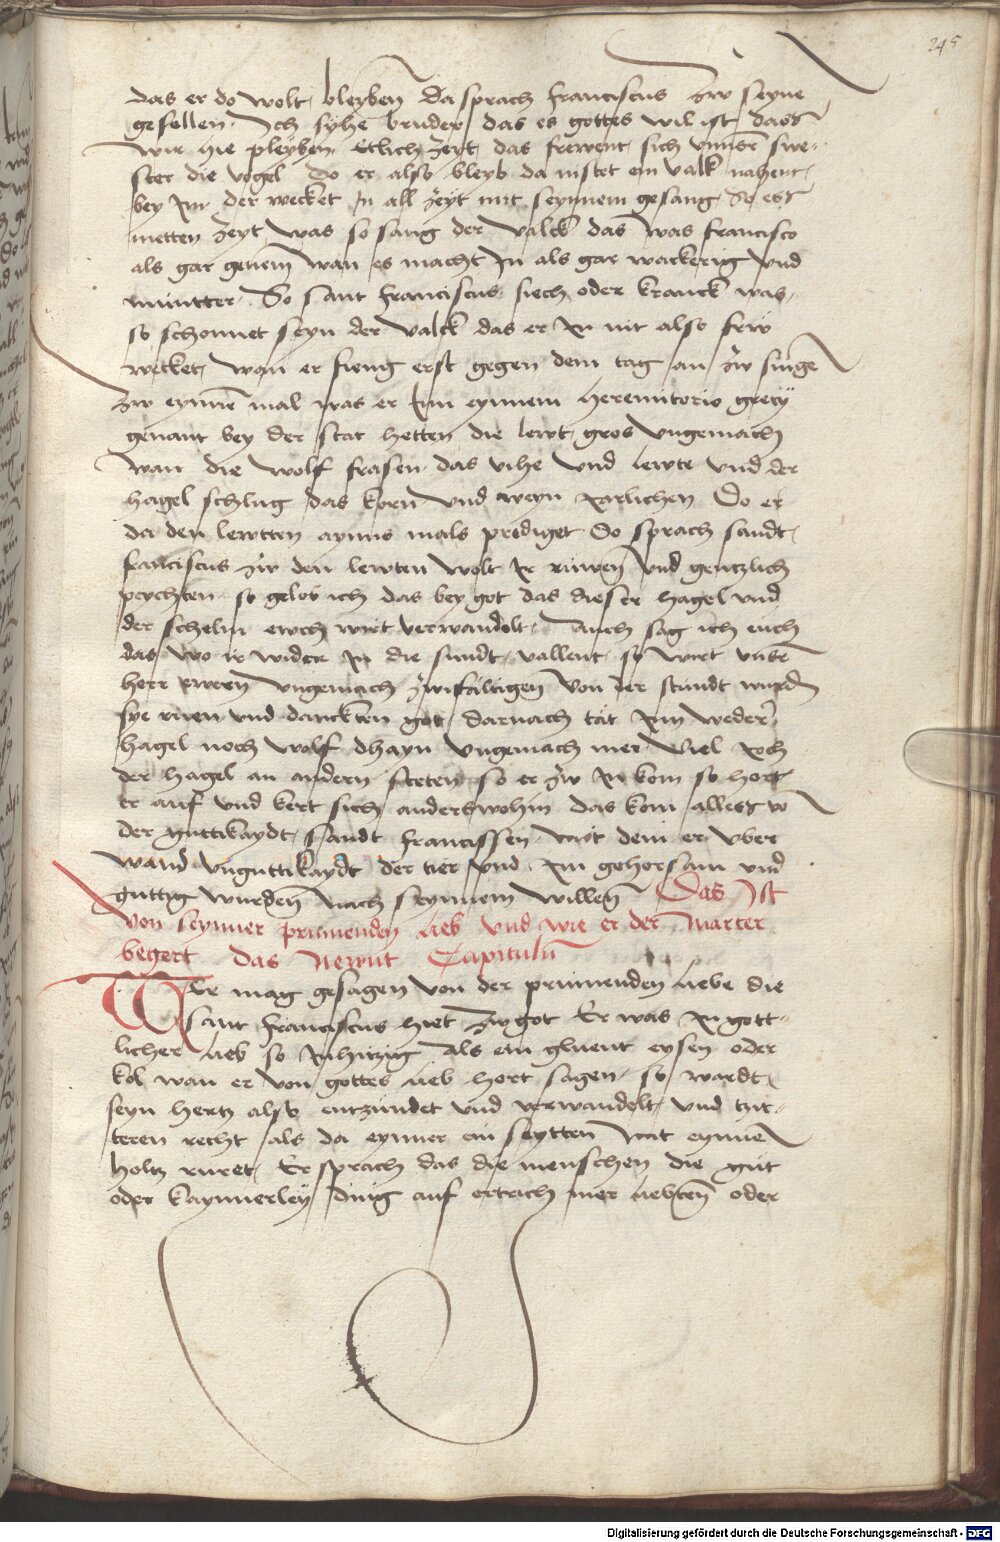 245
das er do wolt bleyben Da sprach Franciscus zw seyne
gesellen Ich syhe bruder das es gottes wil ist das
wir hie pleyben Etlich zeyt das frewent sich unnser swe-
ster die vogel Do er also bleyb da nistet ein valk nahent
bey im der wecket in all zeyt mit seynnem gesang So es
metten zeyt was so sang der valck das was francisco
als gar genem wan es macht in als gar wackerig und
muntter So sant franciscus siech oder kranck was
so schonnet seyn der valck das er in nit also frw
wecket wan er fieng erst gegen dem tag an zw singe
zw eynne mal was er inn eynnem heremitorio grecy
genant bey der stat hetten die lewt gros ungemach
wan die wolf frasen das vihe und lewte und der
hagel schlug das korn und weyn Do er
da den lewtten aynns mals prediget do sprach sandt
franciscus zw den lewten wolt ir ruwen und gentzlich
peychten so gelob ich das bey got das dieser hagel und
der schelm ewch wirt verwandelt Auch sag ich euch
das wo ir wider in die sundt vallent so wirt unser
herr ewern ungemach zwifaltigen von der stundt wurden
sye ruen und danckten got darnach tat inn weder
hagel noch wolf dhayn ungemach mer viel joch
der hagel an andern steten so er zw in kom so hort
er auf und kert sich anderswohin das kom alles vo
der guttikaydt sandt Francissen mit dem er uber
wand unguttikaydt der tier und im gehorsam und
guttig wurden nach seynnem willen Das Ist
von seynner prinnenden lieb und wie er der marter
begert das Newnt Capitulu
Wer mag gesagen von der prinnenden liebe die
sant Franciscus hiet zw got Er was in gott-
licher lieb so inhitzig als ein gluent eysen oder
kol wan er von gottes lieb hort sagen so wardt
seyn hertz also entzundet und verwandelt und tzit-
teren recht als da eynner ein seytten mit eynne
holtz ruret Er sprach das die menschen die gut
oder kaynnerley ding auf ertrich mer liebten oder
Digitalisierung gefördert durch die Deutsche Forschungsgemeinschaft - DFG